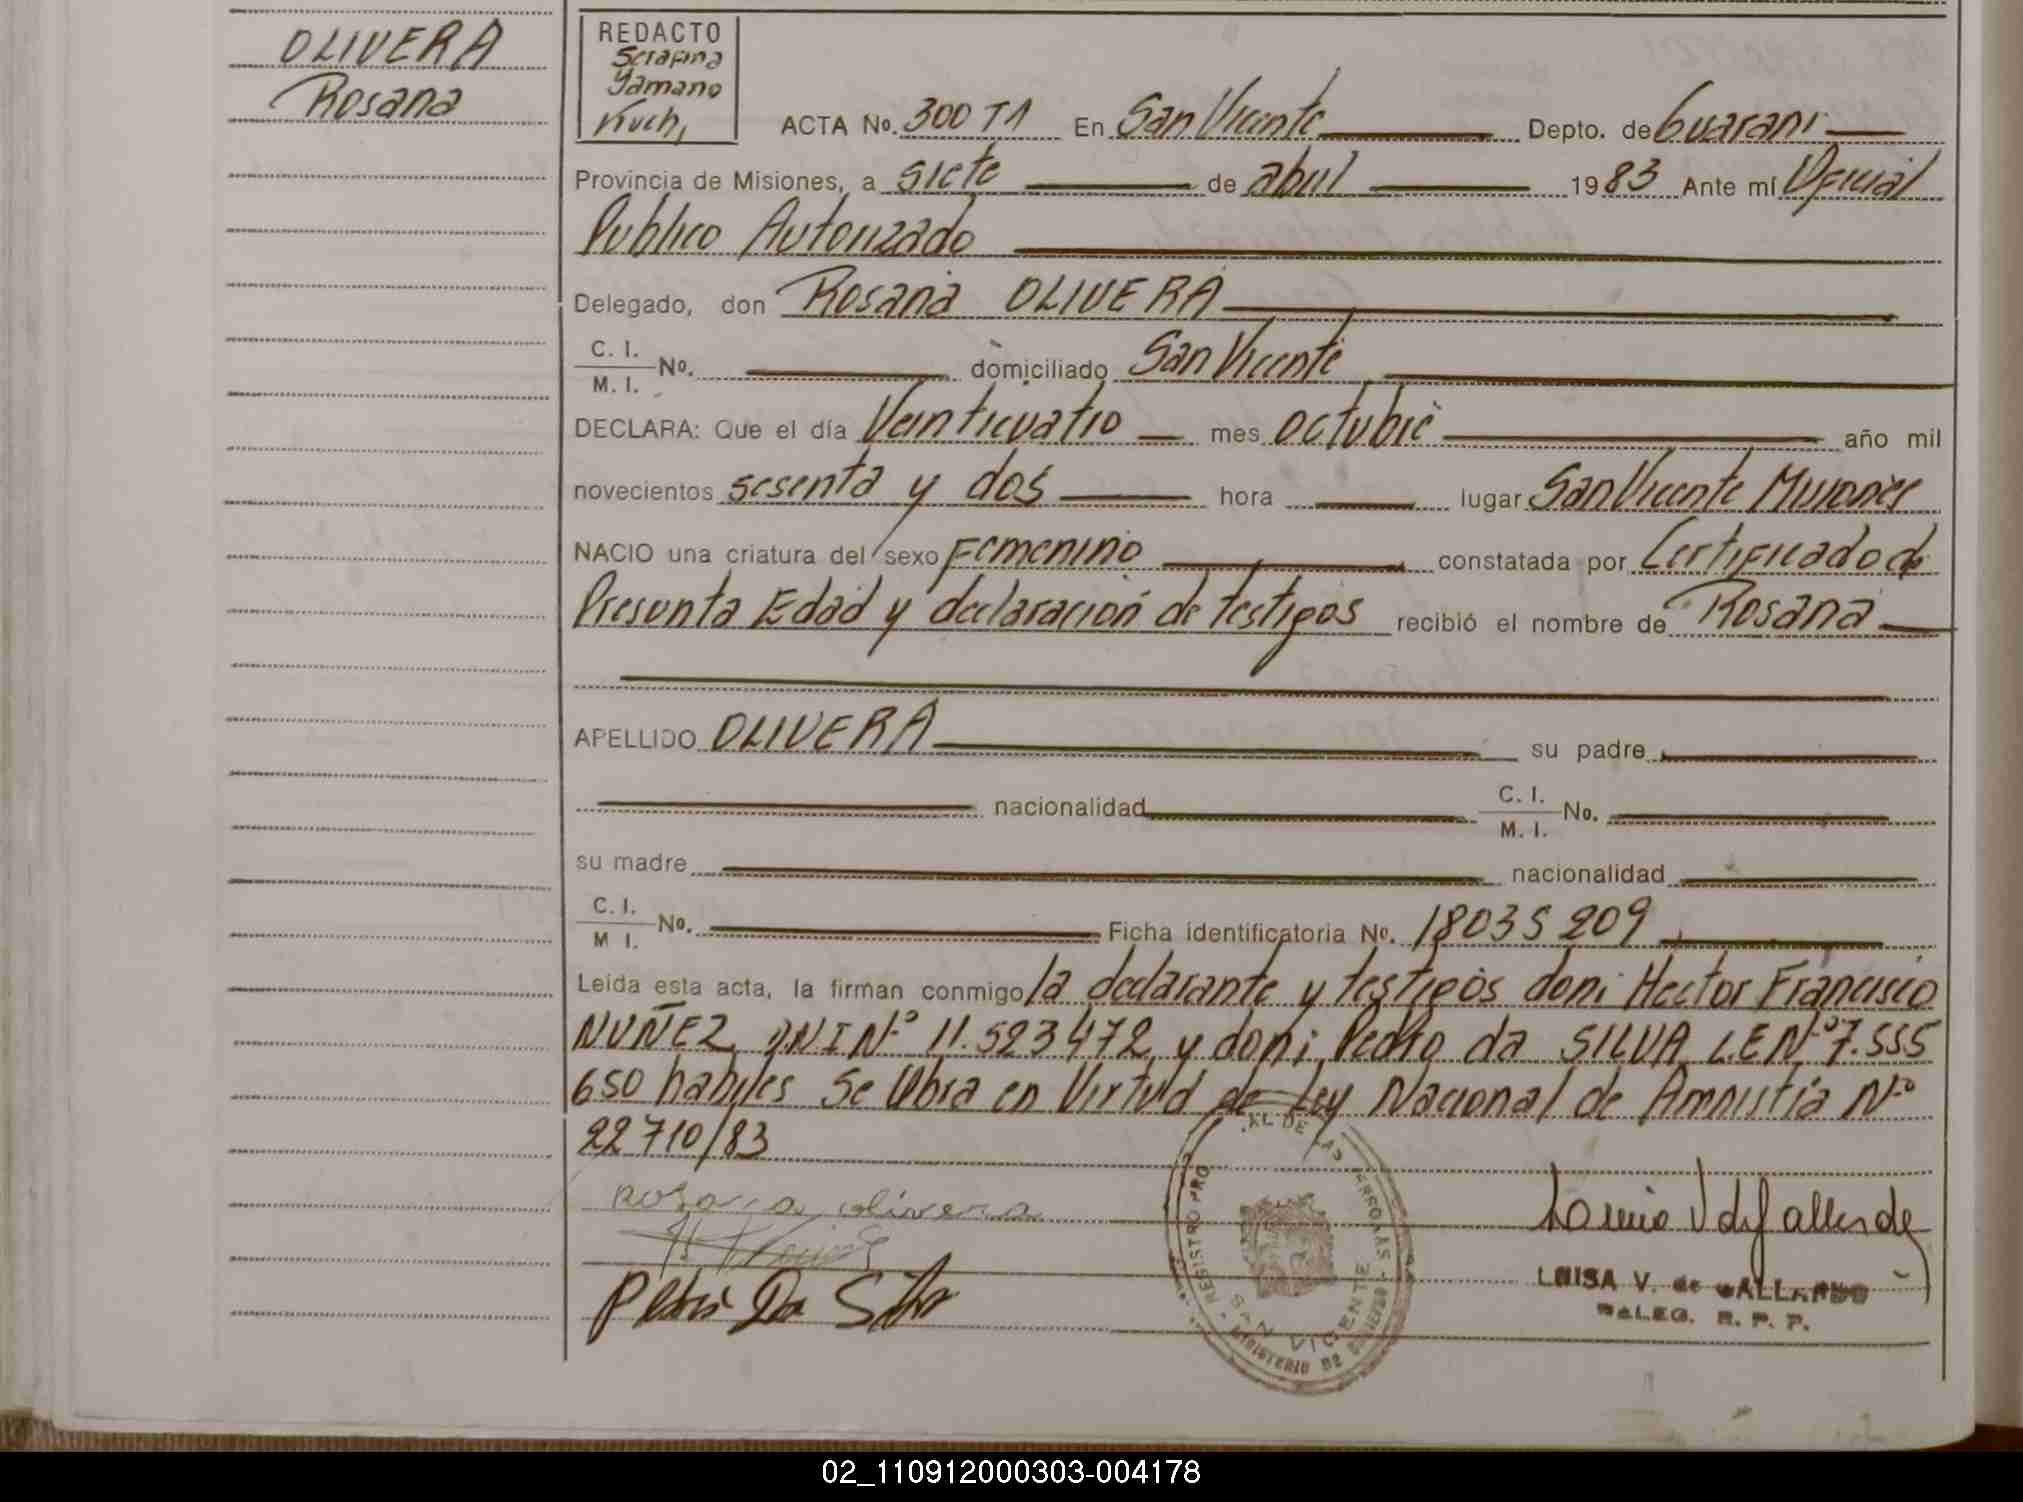 OLIVERA
Rosana
REDACTO
Serafina
Yamano
Kuch,
ACTA No. 300 T1 En San Vicente Depto. de Guarani
Provincia de Misiones, a siete de abril 1983 Ante mí Oficial
Publico Autorizado
Delegado, don Rosana OLIVERA
C. I.
M. I. No. domiciliado San Vicente
DECLARA: Que el día Veinticuatro mes octubre año mil
novecientos sesenta y dos hora lugar San Vicente Misiones
NACIO una criatura del sexo Femenino constatada por Certificado de
Presunta Edad y declaración de testigos recibió el nombre de Rosana
APELLIDO OLIVERA su padre
nacionalidad C. I.
M. I. No.
su madre nacionalidad
C. I.
M I. No. Ficha identificatoria No. 18035209
Leída esta acta, la firman conmigo la declarante y testigos don: Hector Francisco
NUÑEZ D.N.I Nº 11.523472 y don: Pedro da SILVA L.E Nº 7.555
650 habiles Se labra en Virtud de Ley Nacional de Amnistía Nº
22710/83
rosana olivera
Pedro Da Silva
REGISTRO PRO AL DE LAS PERSONAS
SAN VICENTE
MINISTERIO DE GOBIERNO
LUISA V. de GALLARDO
DELEG. R. P. P.
02_110912000303-004178